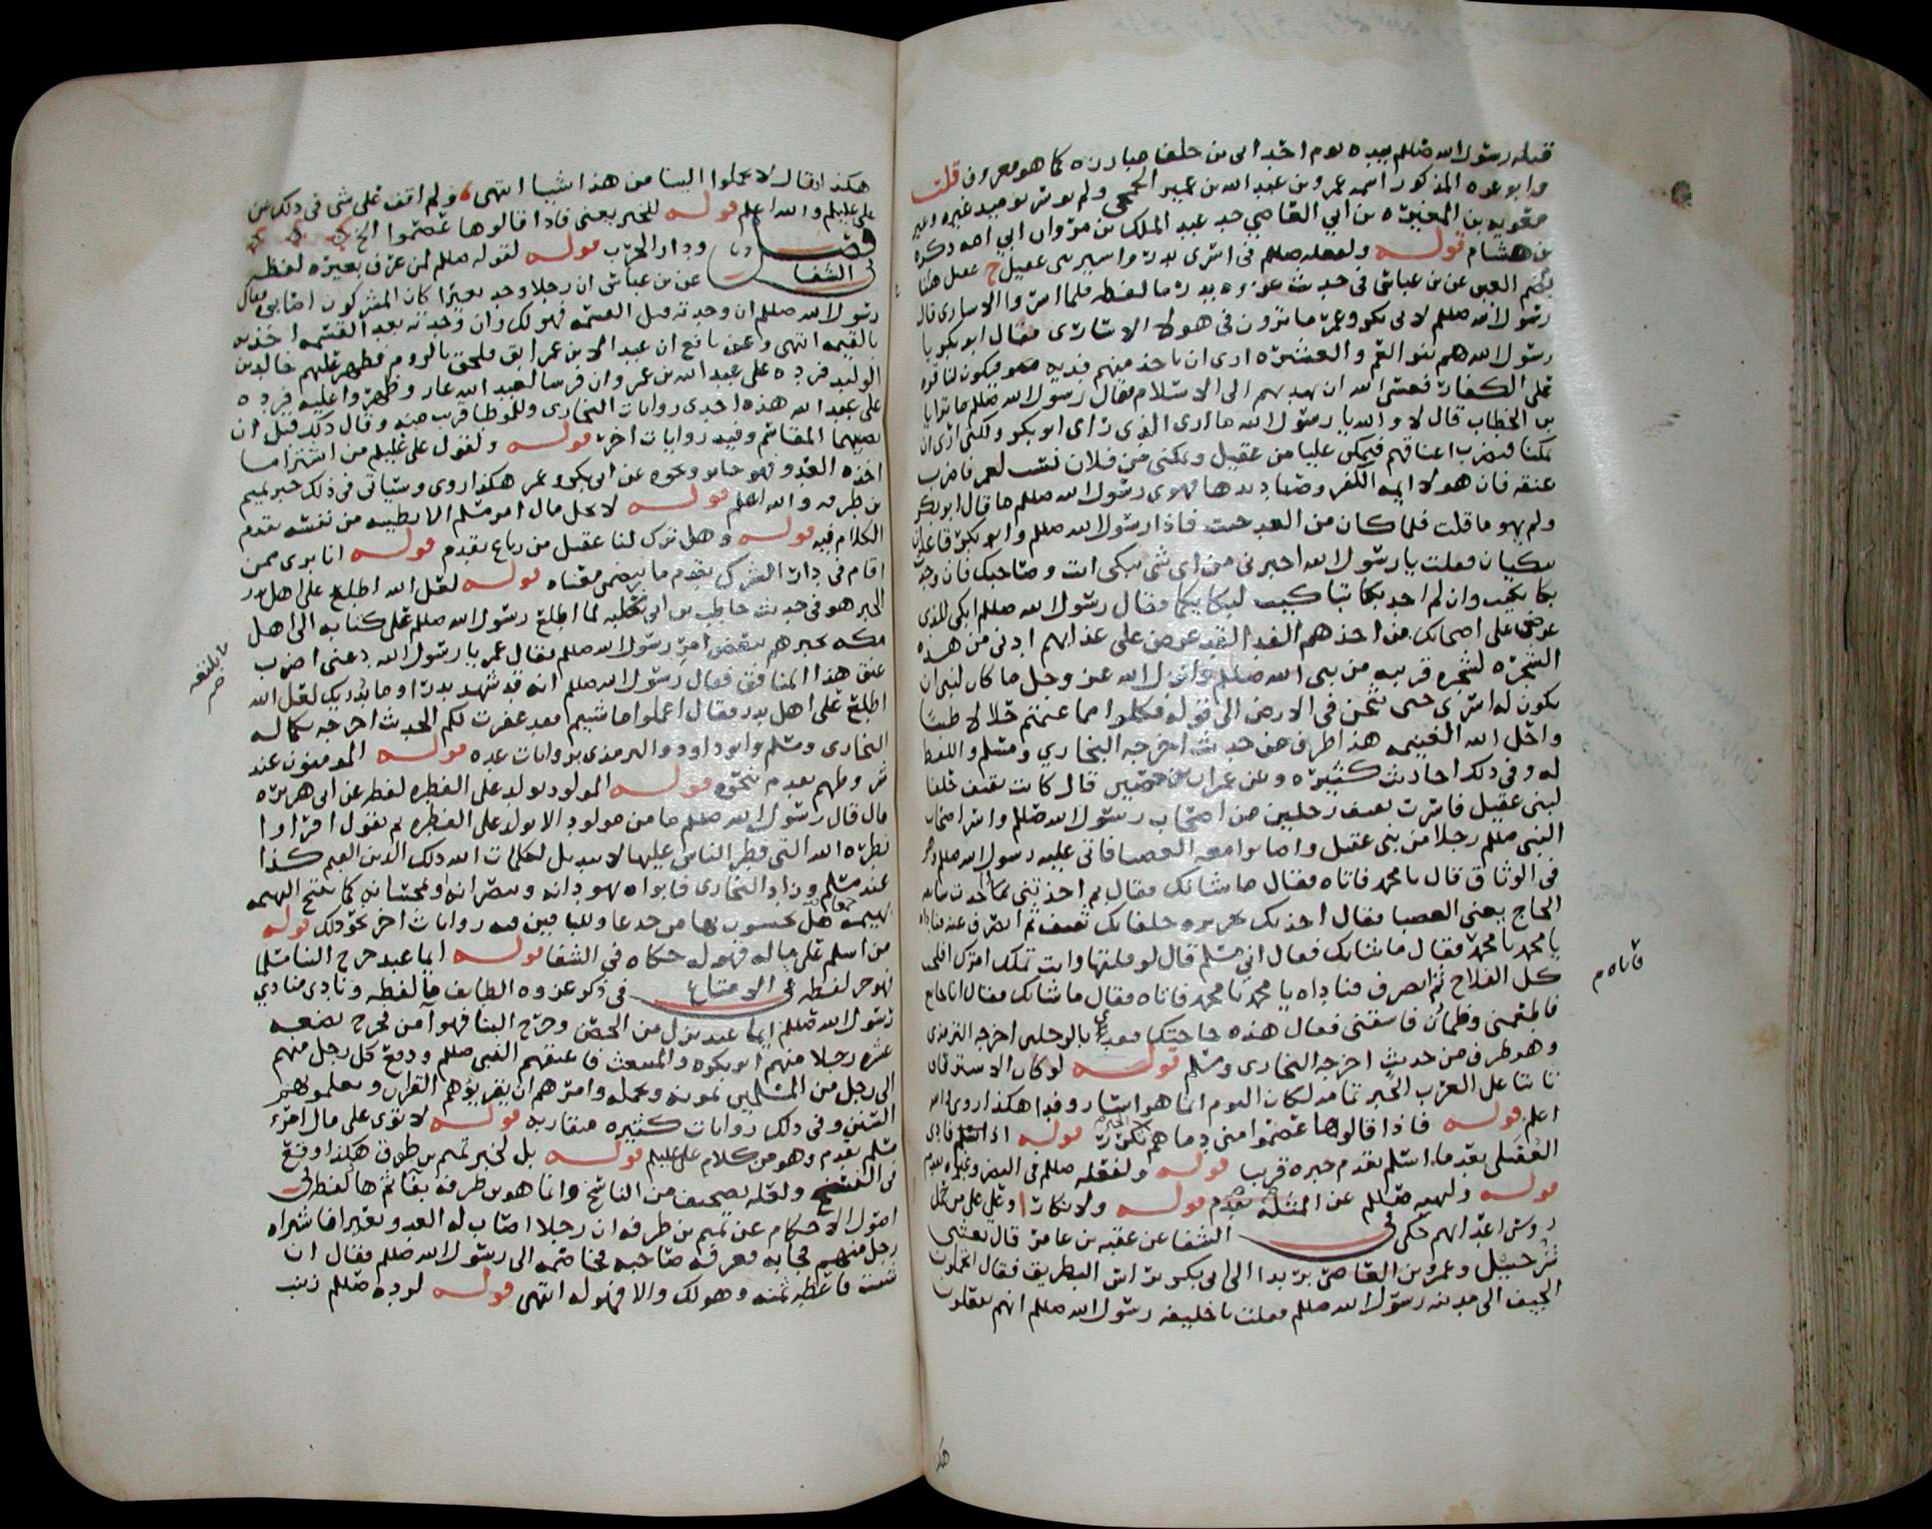 قتله رسول الله صللم بيده يوم احد ابى بن خلف مبارزه كما هو معروف قلت
وابو عزه المذكور اسمه عمرو بن عبد الله بن عمير الجمحى ولم يوسر يوميد غيره وغير
معويه بن المغيره بن ابي العاصي جد عبد الملك بن مروان ابي امه ذكره
بن هشام قوله ولفعله صللم فى اسرى بدر واسير بنى عقيل ح عقيل هنا
بضم العين عن بن عباس فى حديث غزوه بدر ما لفظه فلما اسروا الاسارى قال
رسول الله صللم لابى بكر وعمر ما ترون فى هولا الاسارى فقال ابو بكر يا
رسول الله هم بنو العم والعشيره ارى ان ناخذ منهم فديه فيكون لنا قوه
على الكفار فعسى الله ان يهديهم الى الاسلام فقال رسول الله صللم ما ترى يا
بن الخطاب قال لا والله يا رسول الله ما ارى الذى راى ابو بكر ولكنى ارى ان
تمكنا فنضرب اعناقهم فتمكن عليا من عقيل وتمكنى من فلان نسب لعمر فاضرب
عنقه فان هولا ايمه الكفر وصناديدها فهوى رسول الله صللم ما قال ابو بكر
ولم يهو ما قلت فلما كان من الغد جيت فاذا رسول الله صللم وابو بكر قاعدان
يبكيان فقلت يا رسول الله اخبرنى من اى شى تبكى انت وصاحبك فان وجدت
بكا بكيت وان لم اجد بكا تباكيت لبكايكما فقال رسول الله صللم ابكى للذى
عرض على اصحابك من اخذهم الفدا لقد عرض على عذابهم ادنى من هذه
الشجره لشجره قريبه من نبى الله صللم وانزل الله عز وجل ما كان لنبى ان
يكون له اسرى حتى يثخن فى الارض الى قوله فكلوا مما غنمتم حلالا طيبا
واحل الله الغنيمه هذا طرف من حديث اخرجه البخاري ومسلم واللفظ
له وفى ذلك احاديث كثيره وعن عمران بن حصين قال كانت ثقيف حلفا
لبنى عقيل فاسرت ثقيف رجلين من اصحاب رسول الله صللم واسر اصحاب
النبى صللم رجلا من بنى عقيل واصابوا معه العضبا فاتى عليه رسول الله صللم وهو
فى الوثاق قال يا محمد فاتاه فقال ما شانك فقال بم اخذتنى بما اخذت سابقه
الحاج يعنى العضبا فقال اخذتك بجريره حلفايك ثقيف ثم انصرف عنه فناداه
يا محمد يا محمد فقال ما شانك فقال اني مسلم قال لو قلتها وانت تملك امرك افلحت
كل الفلاح ثم انصرف فناداه يا محمد يا محمد فاتاه فقال ما شانك فقال انى جايع
فاطعمنى وظمان فاسقنى فقال هذه حاجتك ففدى بالرجلين اخرجه الترمذى
وهو طرف من حديث اخرجه البخارى ومسلم قوله لو كان الاسترقاق
ثابتا على العرب الخبر تمامه لكان اليوم انما هو اسار وفدا هكذا روى والله
اعلم قوله فاذا قالوها عصموا منى دماهم الخبر تكرر قوله اذا اسلم فادى
العقيلى بعد ما اسلم تقدم خبره قريبا قوله ولفعله صللم فى البيض وغيره تقدم
قوله ولنهيه صللم عن المثله تقدم قوله ولانكار اوعلى على من حمل
روس اعدايهم حكى فى الشفا عن عقبه بن عامر قال بعثنى
شرحبيل وعمرو بن العاص بريدا الى ابى بكر براس البطريق فقال اتحملون
الجيف الى مدينه رسول الله صللم فقلت يا خليفه رسول الله صللم انهم يفعلون
هكذا
فاتاه م
هكذا فقال لا تحملوا الينا من هذا شيا انتهى ولم اقف على شى فى ذلك عن
على عليلم والله اعلم قوله للخبر يعنى فاذا قالوها عصموا الخ
فصل ودار الحرب قوله لقوله صللم لمن عرف بعيره لفظه
فى الشفا عن بن عباس ان رجلا وجد بعيرا كان المشركون اصابوه فقال
رسول الله صللم ان وجدته قبل القسمه فهو لك وان وجدته بعد القسمه اخذته
بالقيمه انتهى وعن نافع ان عبدا لابن عمر ابق فلحق بالروم فظهر عليهم خالد بن
الوليد فرده على عبد الله بن عمر وان فرسا لعبد الله عار وظهروا عليه فرده
على عبد الله هذه احدى روايات البخارى وللموطا قريب منه وقال ذلك قبل ان
يصيبهما المقاسم وفيه روايات اخر قوله ولقول على عليلم من اشترا ما
اخذه العدو فهو جايز ونحوه عن ابى بكر وعمر هكذا روى وسياتى فى ذلك خبر تميم
بن طرفه والله اعلم قوله لا يحل مال امر مسلم الا بطيبه من نفسه تقدم
الكلام فيه قوله وهل ترك لنا عقيل من رباع تقدم قوله انا برى ممن
اقام فى دار الشرك تقدم ما يتضمن معناه قوله لعل الله اطلع على اهل بدر
الخبر هو فى حديث حاطب بن ابى بلتعه لما اطلع رسول الله صللم على كتابه الى اهل
مكه يخبرهم ببعض امر رسول الله صللم فقال عمر يا رسول الله دعنى اضرب
عنق هذا المنافق فقال رسول الله صللم انه قد شهد بدرا وما يدريك لعل الله
اطلع على اهل بدر فقال اعملوا ما شيتم فقد غفرت لكم الحديث اخرجه بكماله
البخارى ومسلم وابو داود والترمذى بروايات عده قوله المومنون عند
شروطهم تقدم نحوه قوله المولود يولد على الفطره لفظه عن ابى هريره
قال قال رسول الله صللم ما من مولود الا يولد على الفطره ثم يقول اقراوا
فطره الله التى فطر الناس عليها لا تبديل لكلمات الله ذلك الدين القيم كذا
عند مسلم وزاد البخارى فابواه يهودانه وينصرانه ويمجسانه كما تنتج البهيمه
بهيمه جمعا هل تحسون بها من جدعا وللباقين فيه روايات اخر نحو ذلك قوله
من اسلم على ماله فهو له حكاه فى الشفا قوله ايما عبد خرج الينا مسلما
فهو حر لفظه فى الامتاع فى ذكر غزوه الطايف ما لفظه ونادى منادي
رسول الله صللم ايما عبد نزل من الحصن وخرج الينا فهو آمن فخرج بضعه
عشره رجلا منهم ابو بكره والمنبعث فاعتقهم النبى صللم ودفع كل رجل منهم
الى رجل من المسلمين يمونه ويحمله وامرهم ان يقريوهم القران ويعلموهم
السنن وفى ذلك روايات كثيره متقاربه قوله لا توى على مال امرء
مسلم تقدم وهو من كلام على عليلم قوله بل لخبر تميم بن طوق هكذا وقع
فى النسخ ولعله تصحيف من الناسخ وانما هو بن طرفه بفا ثم ها لفظه فى
اصول الاحكام عن تميم بن طرفه ان رجلا اصاب له العدو بعيرا فاشتراه
رجل منهم فجا به فعرفه صاحبه فخاصمه الى رسول الله صللم فقال ان
شيت فاعطه ثمنه وهو لك والا فهو له انتهى قوله لرده صللم زينب